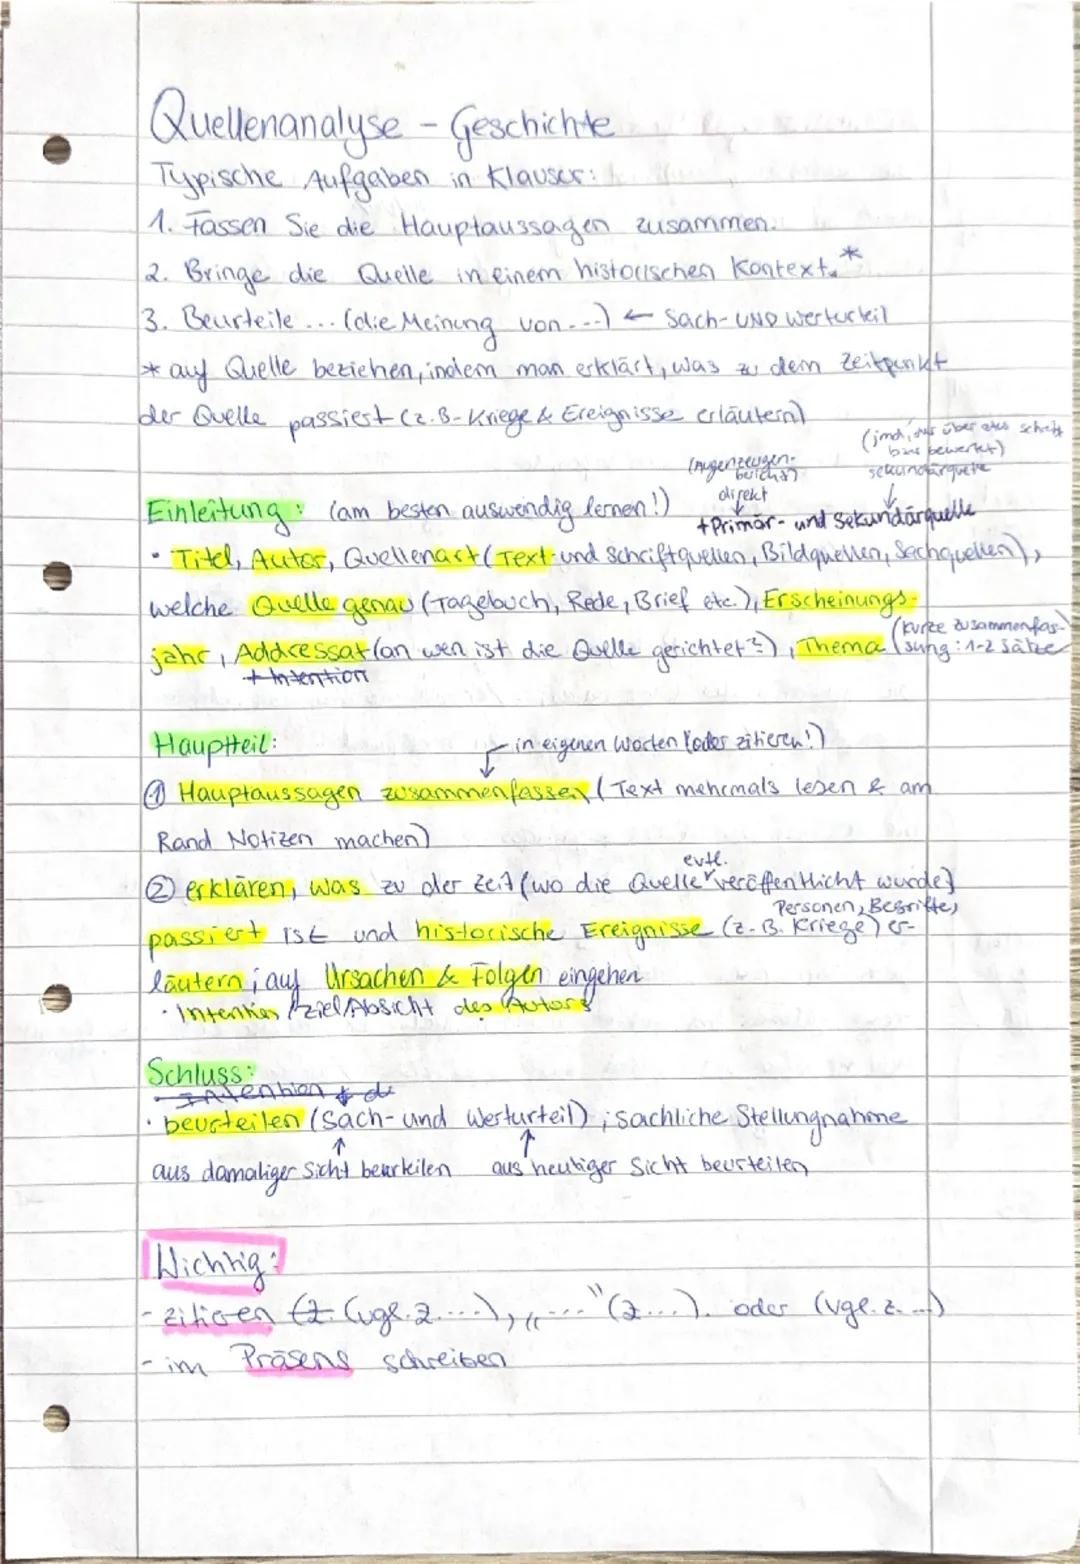 Quellenanalyse - Geschichte
Typische Aufgaben in Klausur:
1. Fassen Sie die Hauptaussagen zusammen.
2. Bringe die Quelle in einem historischen Kontext. *
3. Beurteile ... (die Meinung von ...) ← Sach- UND Werturteil
* auf Quelle beziehen, indem man erklärt, was zu dem Zeitpunkt
der Quelle passiert (z.B. Kriege & Ereignisse erläutern)
(jmd, der über etw schreibt
bzw bewertet)
(Augenzeugen-
bericht)
sekundärquelle
direkt
Einleitung: (am besten auswendig lernen!) + Primär- und Sekundärquelle
• Titel, Autor, Quellenart (Text- und Schriftquellen, Bildquellen, Sachquellen),
welche Quelle genau (Tagebuch, Rede, Brief etc.), Erscheinungs-
jahr, Addressat (an wen ist die Quelle gerichtet?), Thema (kurze Zusammenfas-
sung: 1-2 Sätze
+ Intention
Hauptteil: in eigenen Worten (oder zitieren!)
① Hauptaussagen zusammenfassen (Text mehrmals lesen & am
Rand Notizen machen)
② erklären, was zu der Zeit (wo die Quelle evtl. veröffentlicht wurde)
Personen, Begriffe,
passiert ist und historische Ereignisse (z.B. Kriege) er-
läutern; auf Ursachen & Folgen eingehen
• Intention / Ziel/Absicht des Autors
Schluss:
Intention + de
• beurteilen (Sach- und Werturteil); sachliche Stellungnahme
aus damaliger Sicht beurteilen aus heutiger Sicht beurteilen
Wichtig:
- zitieren (Z. (vgl. Z. ....), „ ... " (Z ...). oder (vgl. Z. ...)
- im Präsens schreiben